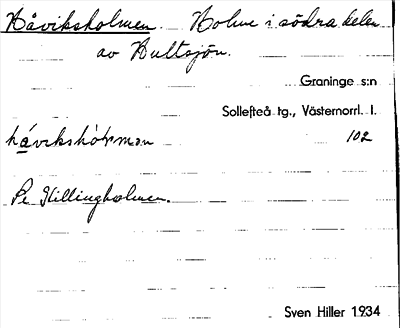 Håvikshólmen. Holme i södra delen
av Hultsjön.
Graninge s:n
Sollefteå tg., Västernorrl. l.
102
På Killingholmen.
Sven Hiller 1934